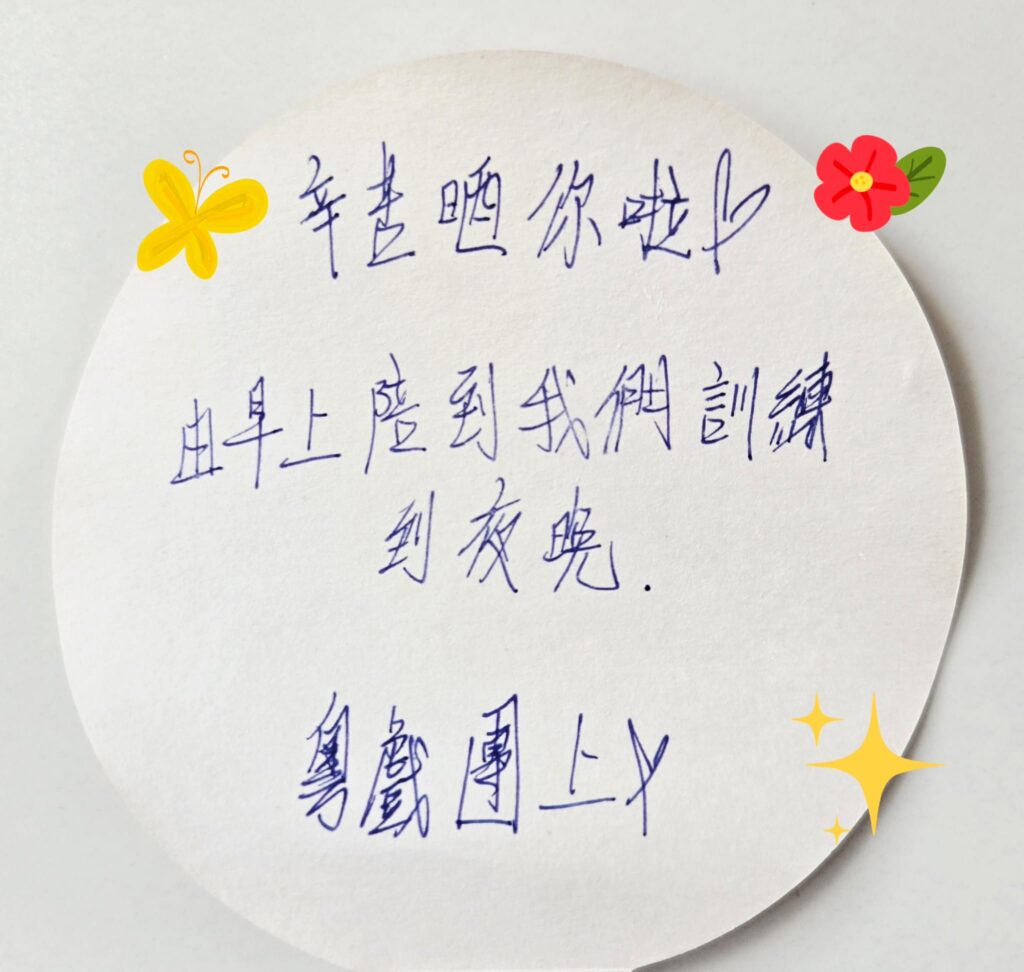 辛苦晒你啦
由早上陪到我們訓練
到夜晚.
粵戲團上